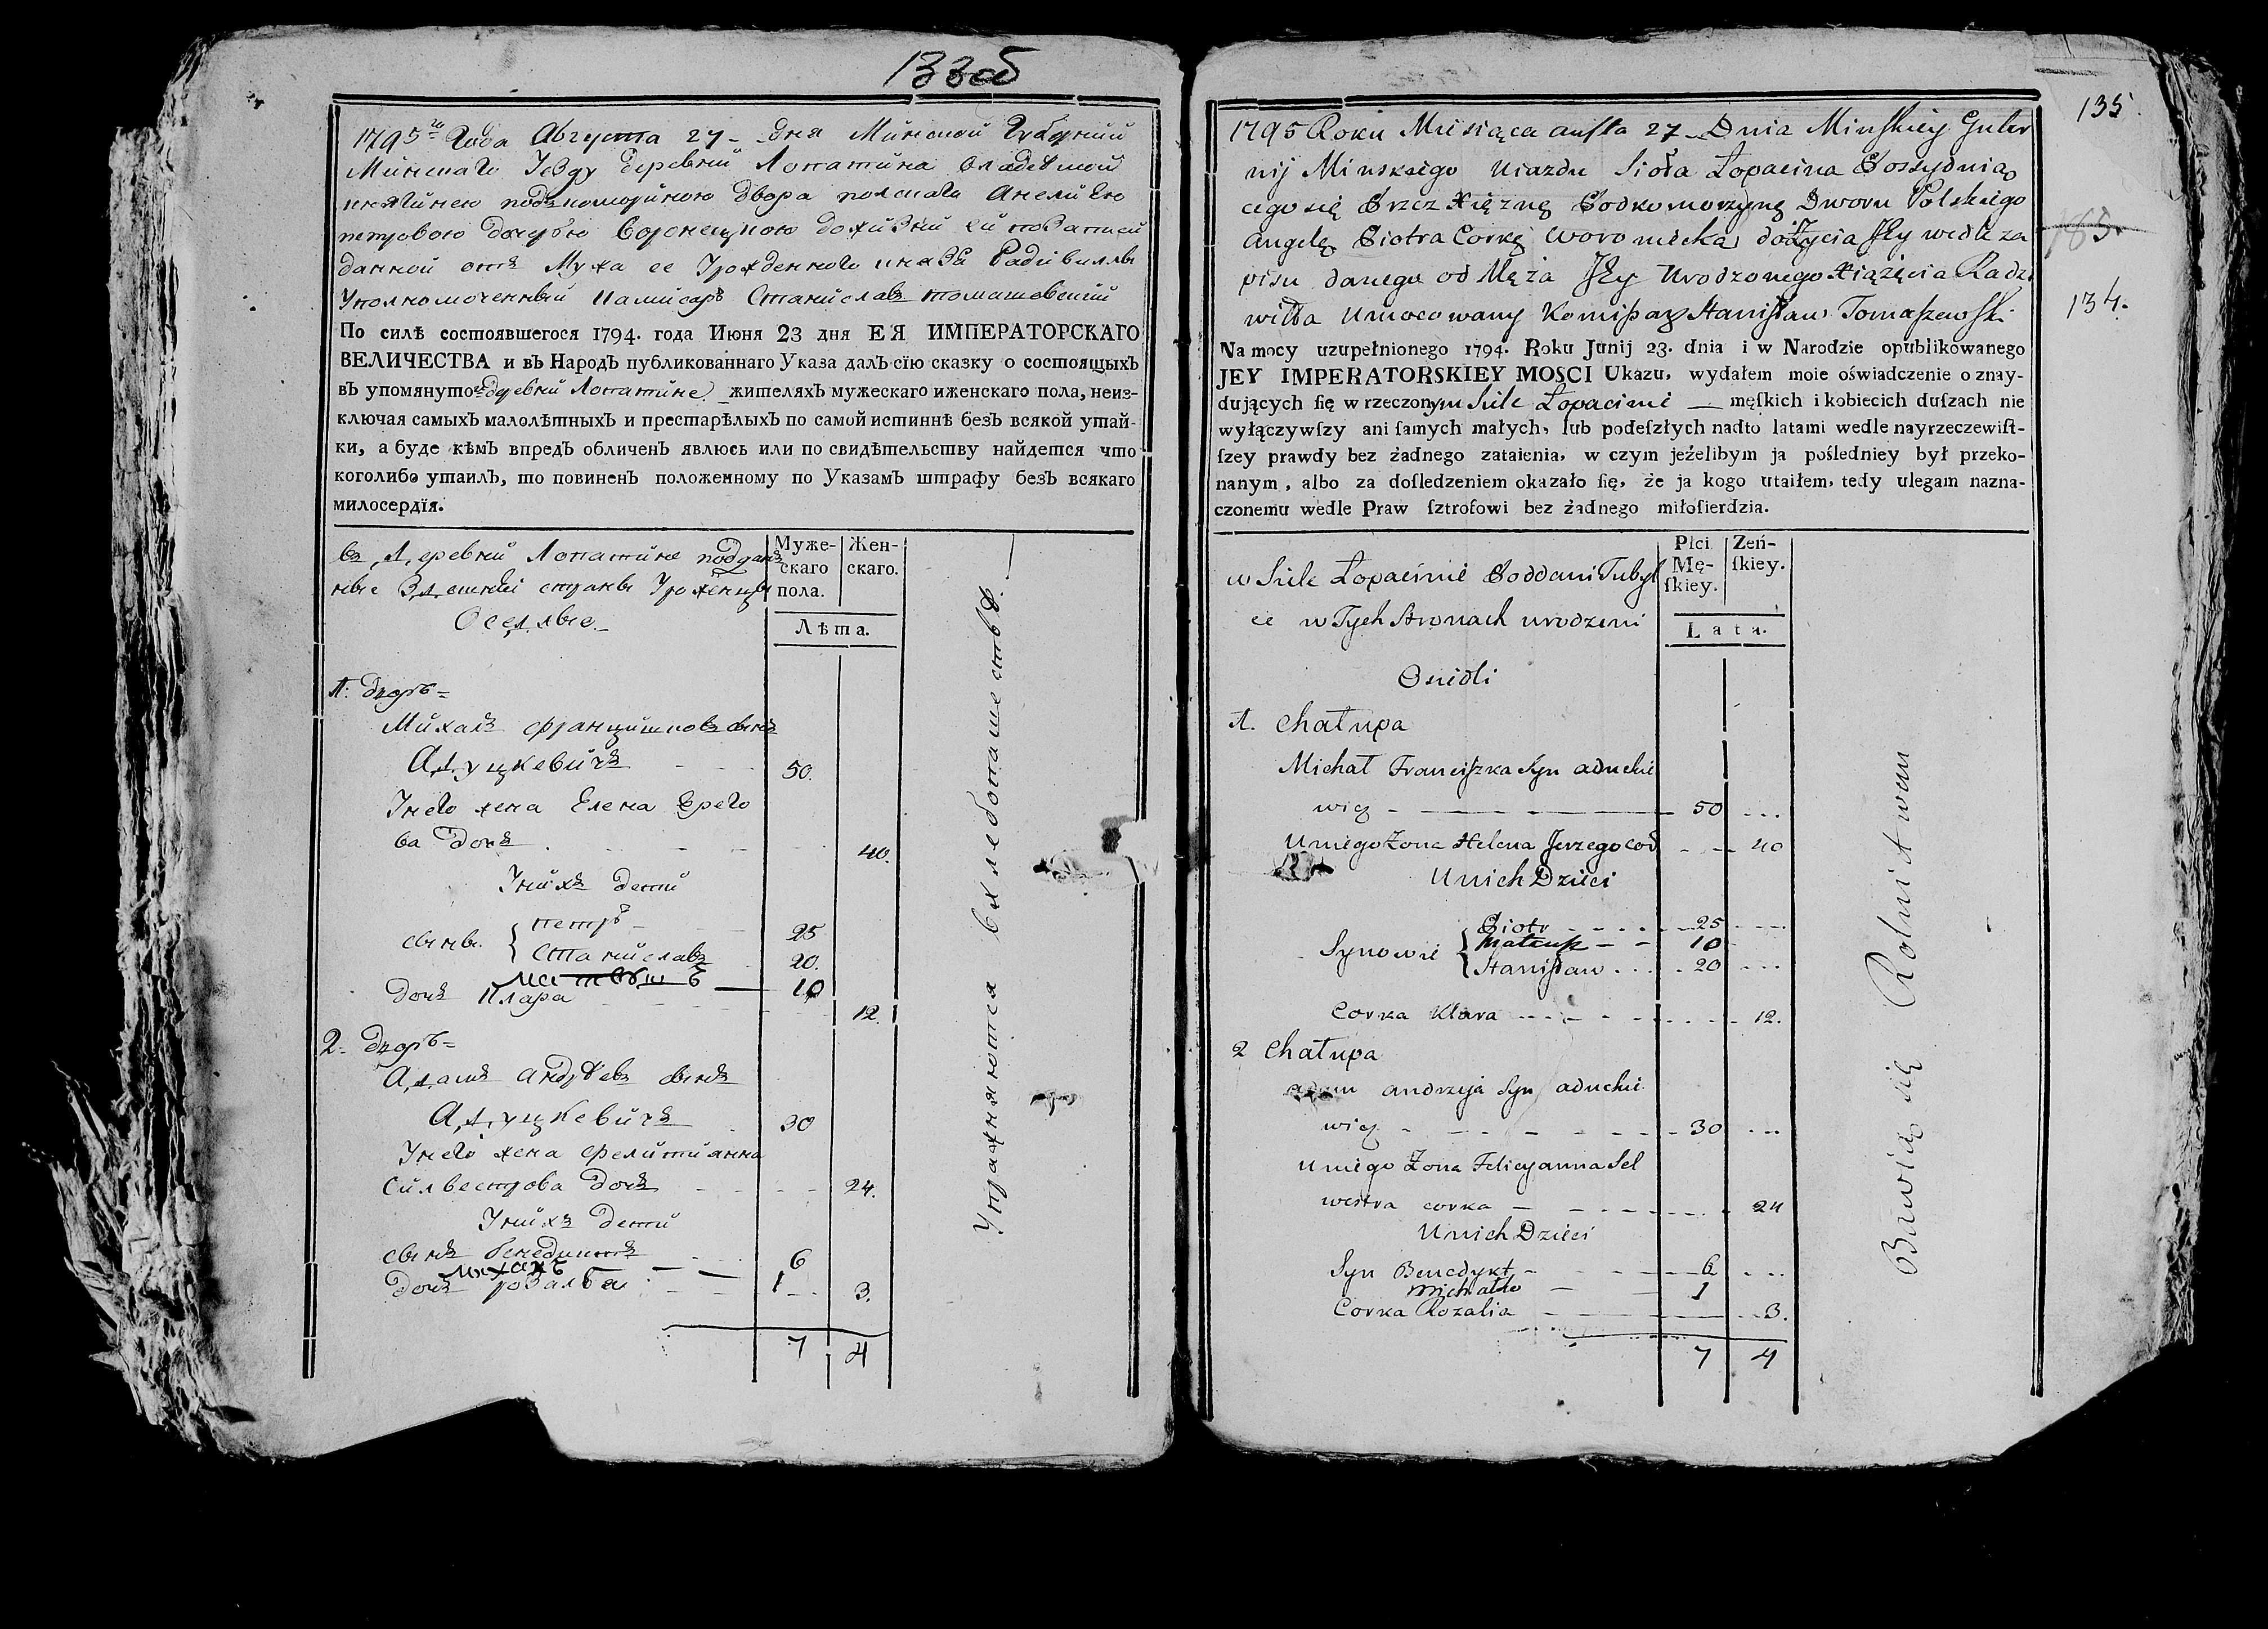 133об
1795го Года Августа 27 - Дня Минской Губернии
Минскаго Уезду Деревни Лопатина владемой
княгинею подкоморыною двора полскаго Анелиею
петровою дочерью Воронецкою дожизни ей по записи
данной отъ Мужа ее Урожденного князя Радивилла
Уполномоченный Камисаръ Станиславъ томашевский
По силѣ состоявшегося 1794. года Июня 23 дня ЕЯ ИМПЕРАТОРСКАГО
ВЕЛИЧЕСТВА и въ Народъ публикованнаго Указа далъ сїю сказку о состоящыхъ
въ упомянутой деревни Лопатине жителяхъ мужескаго иженскаго пола, неиз-
ключая самыхъ малолѣтныхъ и престарѣлыхъ по самой истиннѣ безъ всякой утай-
ки, а буде кѣмъ впредъ обличенъ явлюсь или по свидѣтельству найдется что
коголибо утаилъ, то повиненъ положенному по Указамъ штрафу безъ всякаго
милосердїя.
въ Деревни Лопатине поддан
ные Здешней страны Уроженцы
Оседлые
Муже-скаго пола.
Жен-скаго.
Лѣта.
1: дворъ
Михалъ францишковъ сынъ
Адуцкевичъ - - - 50.
Унего жена Елена Ерего
ва Дочь - - - 40.
Унихъ дети
сыны { петръ - 25
Станиславъ - 20.
матвѣй — 10
Дочь Клара - - - 12.
2. дворъ
Адамъ андрѣевъ сынъ
Адуцкевичъ - 30
Унего жена фелитиянна
Силвестрова Дочь - - - 24.
Унихъ дети
сынъ бенедиктъ - - 6
михалъ — 1
Дочь розалья - - - 3.
7 4
Упражняются в хлебопашестве.
135.
185.
134.
1795 Roku Miesiąca aussta 27 - Dnia Minskiey Guber
nij Minskiego Uiazdu Sioła Łopacina Possydniąo
cego się Przez Xiężnę Podkomorzynę Dworu Polskiego
Angelę Piotra Corkę Woroniecką do życia Jey wedle za
pisu danego od Męża Jey Urodzonego Xiążęcia Radzi
wiłła Umocowany Komissarz Stanisław Tomaszewski
Na mocy uzupełnionego 1794. Roku Junij 23. dnia i w Narodzie opublikowanego
JEY IMPERATORSKIEY MOSCI Ukazu, wydałem moie oświadczenie o znay-
duiących ſię w rzeczonym Siele Łopacinie — męſkich i kobiecich duſzach nie
wyłączywſzy ani ſamych małych, lub podeſzłych nadto latami wedle nayrzeczewiſt-
ſzey prawdy bez żadnego zataienia, w czym jeżelibym ja pośledniey był przeko-
nanym, albo za doſledzeniem okazało ſię, że ja kogo utaiłem, tedy ulegam nazna-
czonemu wedle Praw ſztrofowi bez żadnego miłoſierdzia.
w Siele Łopacinie Poddani Tubyl
ce w Tych Stronach urodzeni
Osiedli
Płci Mę-ſkiey.
Zeń-ſkiey.
Lata.
1. Chałupa
Michał Franciszka Syn aduckie
wicz - — — — 50 ...
U niego Zona Helena Jerzego cor - - 40
U nich Dzieci
Synowie { Piotr - - - 25 ...
Mateusz - - 10
Stanisław . . . 20 ...
Corka Klara - - - 12.
2 Chałupa
adam andrzeja Syn aduckie
wicz - - - - 30 ...
U niego Zona Felicyanna Sel
westra corka - - - 24
U nich Dzieci
Syn Benedykt - - - 6 ...
Michałko — 1
Corka Rozalia - - - 3.
7 4
Bawią się Rolnictwem